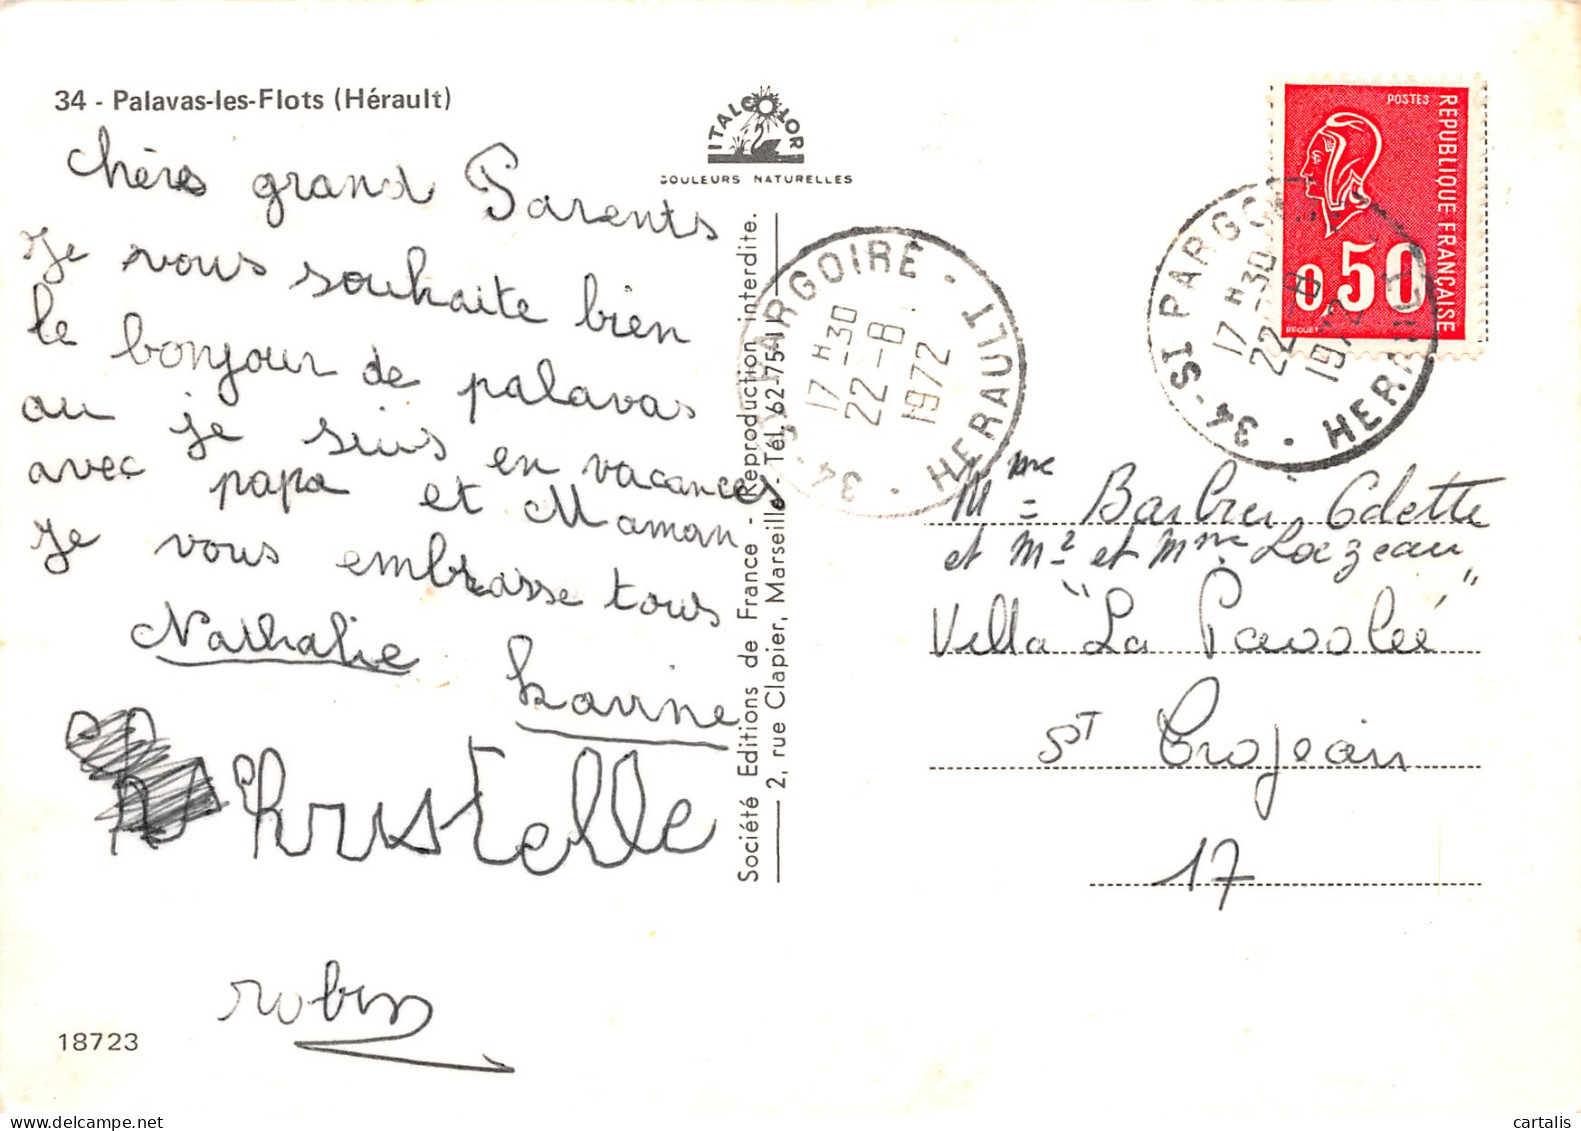 34 - Palavas-les-Flots (Hérault)
chères grand Parents
Je vous souhaite bien
le bonjour de palavas
au je suis en vacances
avec papa et Maman
Je vous embrasse tous
Nathalie Karine
Christelle
robin
18723
ITALCOLOR
COULEURS NATURELLES
Société Editions de France - Reproduction interdite.
2, rue Clapier, Marseille - Tél. 62-75-11
34 - ST PARGOIRE - HERAULT
17 H 30
22 - 8
1972
POSTES
REPUBLIQUE FRANÇAISE
0,50
BEQUET
34 - ST PARGOIRE HERAULT
17 H 30
22 - 8
1972
Mme Odette
et Mr et Mme Lozeau
Villa "La
ST Trojean
17
cartalis